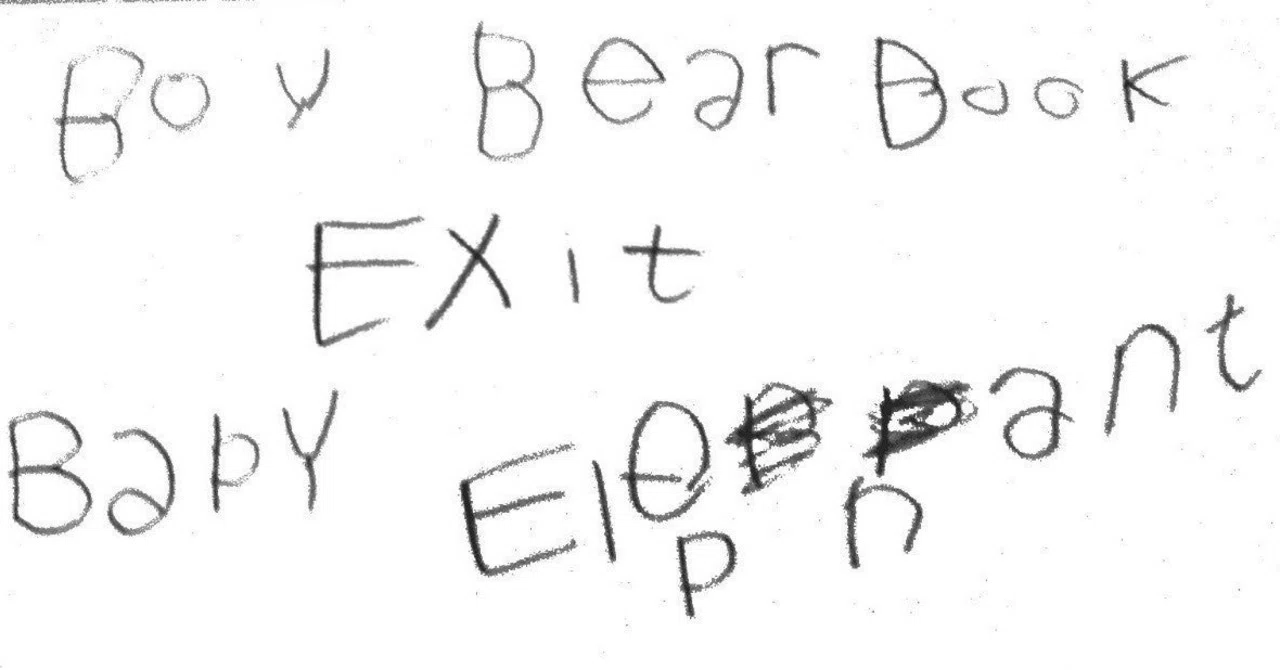 Boy Bear Book
Exit
Bapy Ele ant
p n